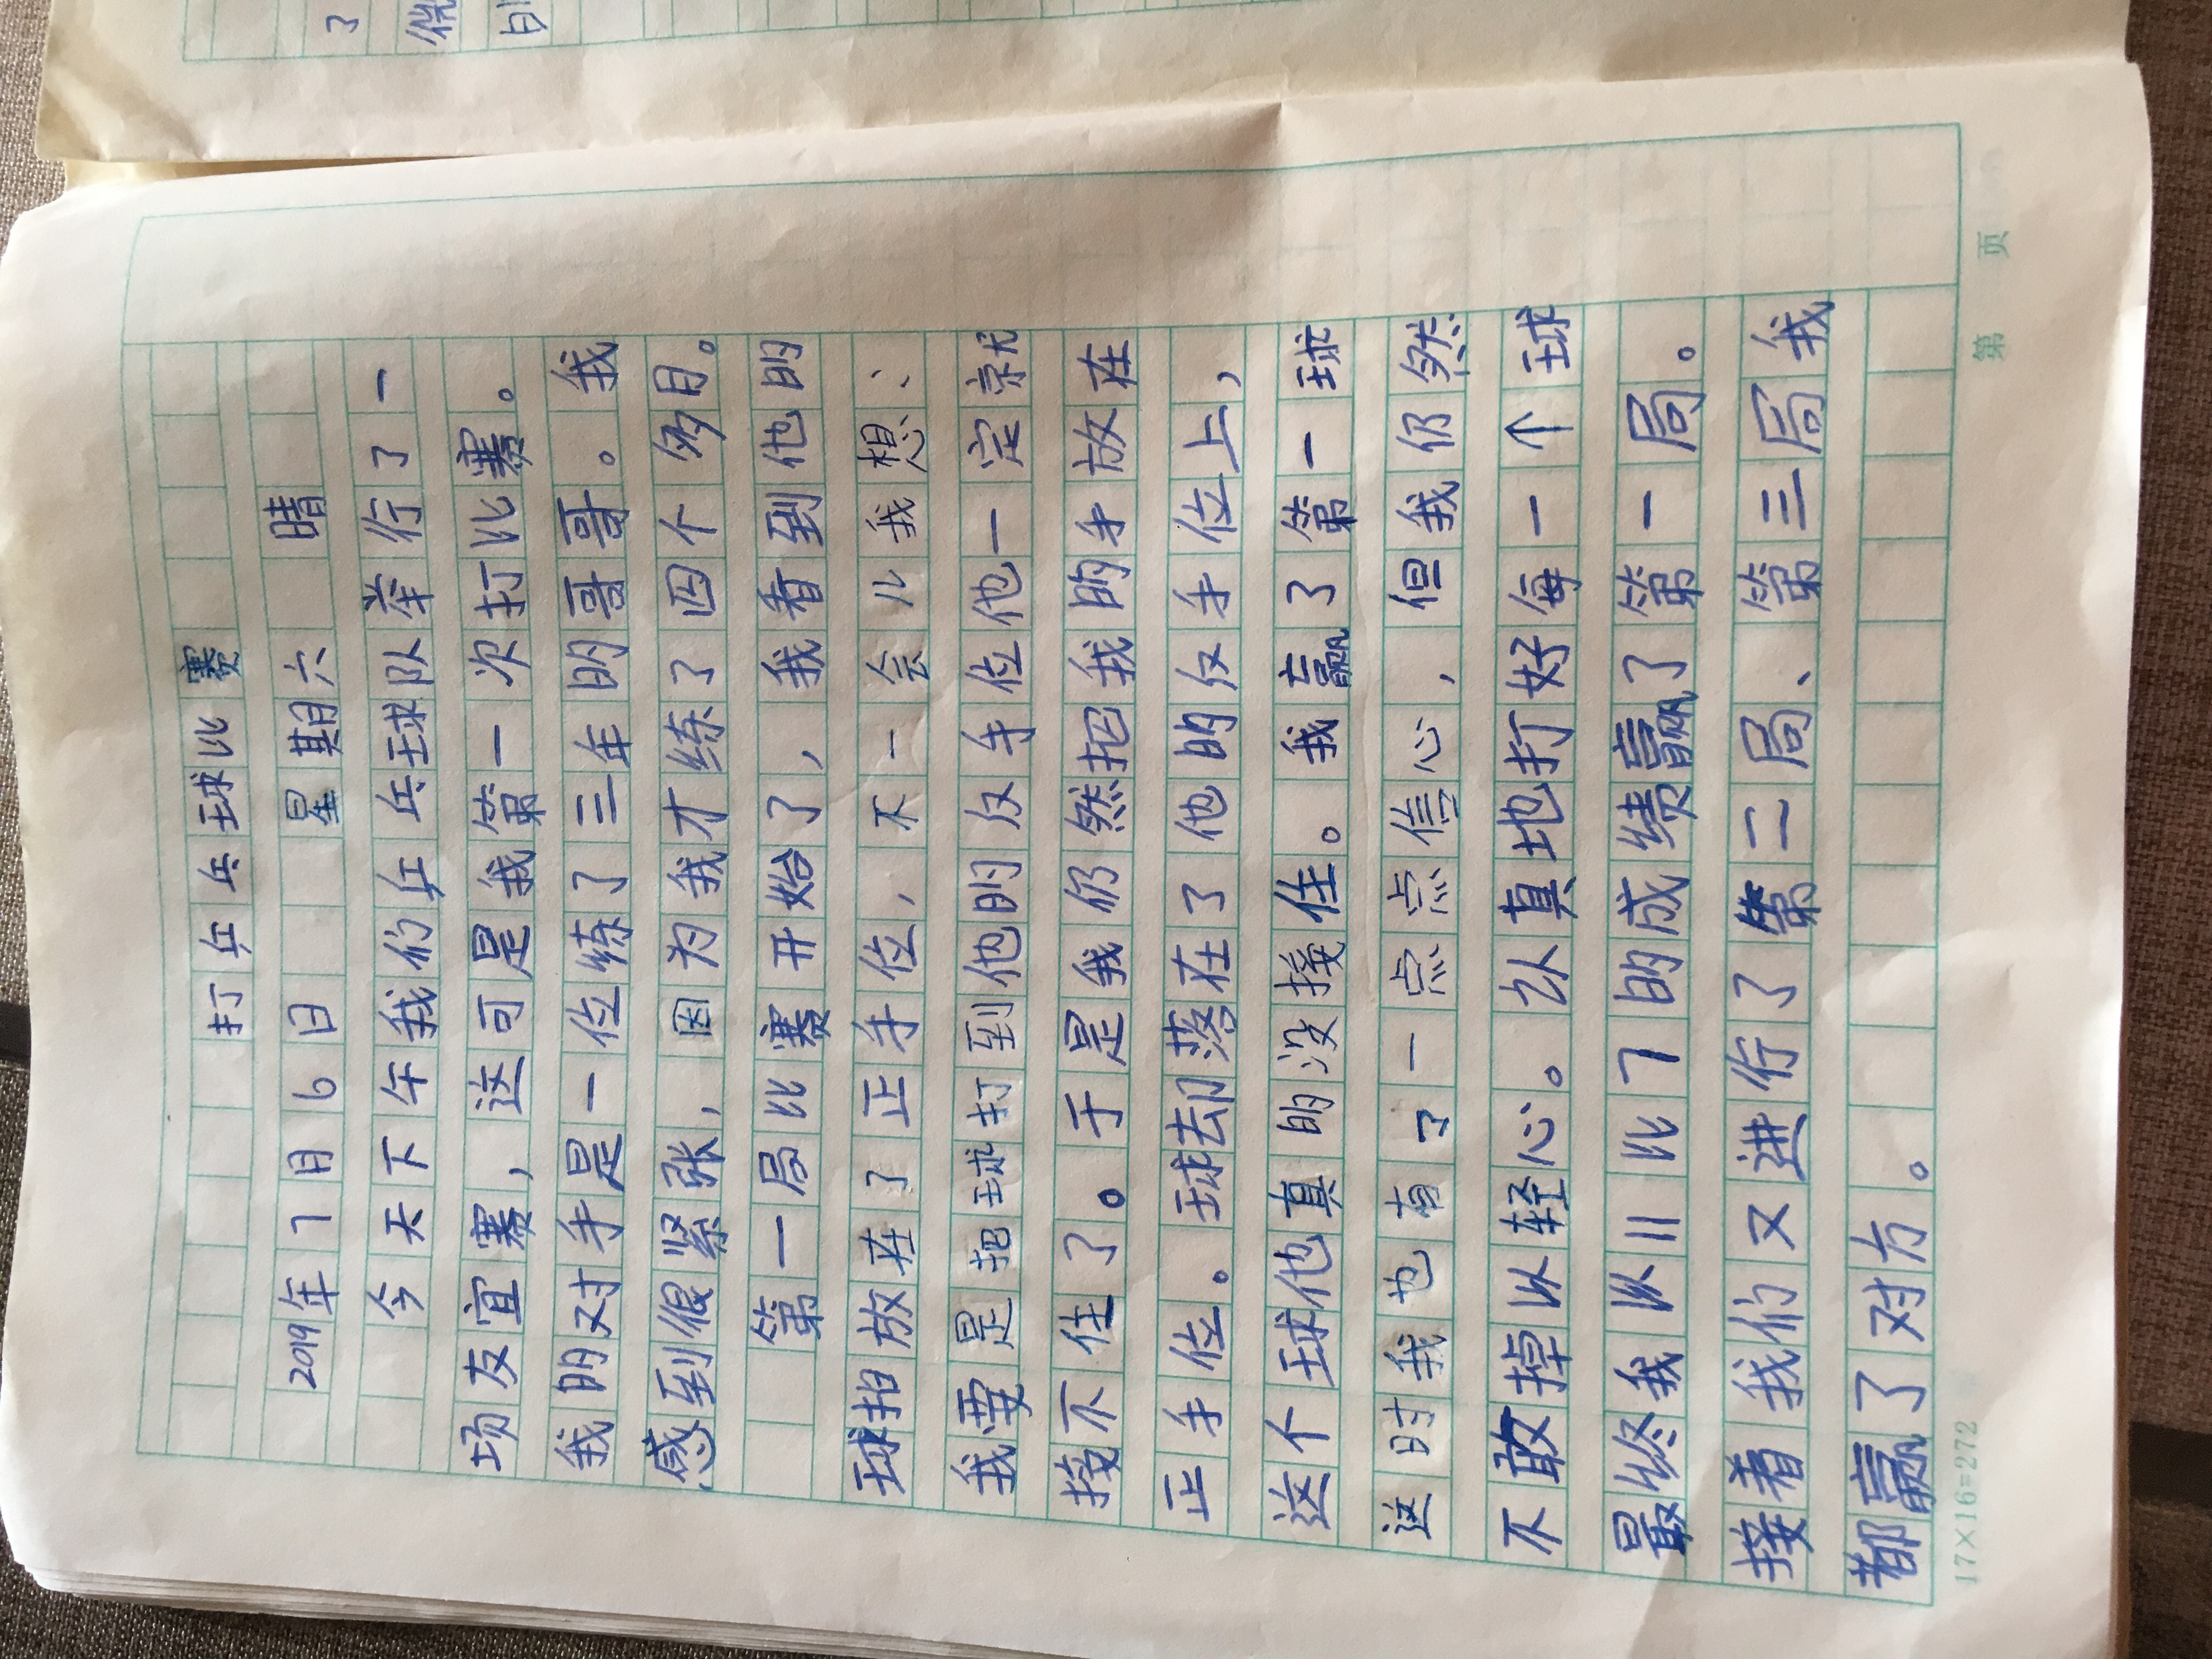 打乒乓球比赛
2019年7月6日 星期六 晴
今天下午我们乒乓球队举行了一
场友宜赛，这可是我第一次打比赛。
我的对手是一位练了三年的哥哥。我
感到很紧张，因为我才练了四个多月。
第一局比赛开始了，我看到他的
球拍放在了正手位，不一会儿我想：
我要是把球打到他的反手位他一定就
接不住了。于是我仍然把我的手放在
正手位。球却落在了他的反手位上，
这个球他真的没接住。我赢了第一球
这时我也有了一点点信心，但我仍然
不敢掉以轻心。以真地打好每一个球
最终我以11比7的成绩赢了第一局。
接着我们又进行了第二局、第三局我
都赢了对方。
17×16=272 第 页